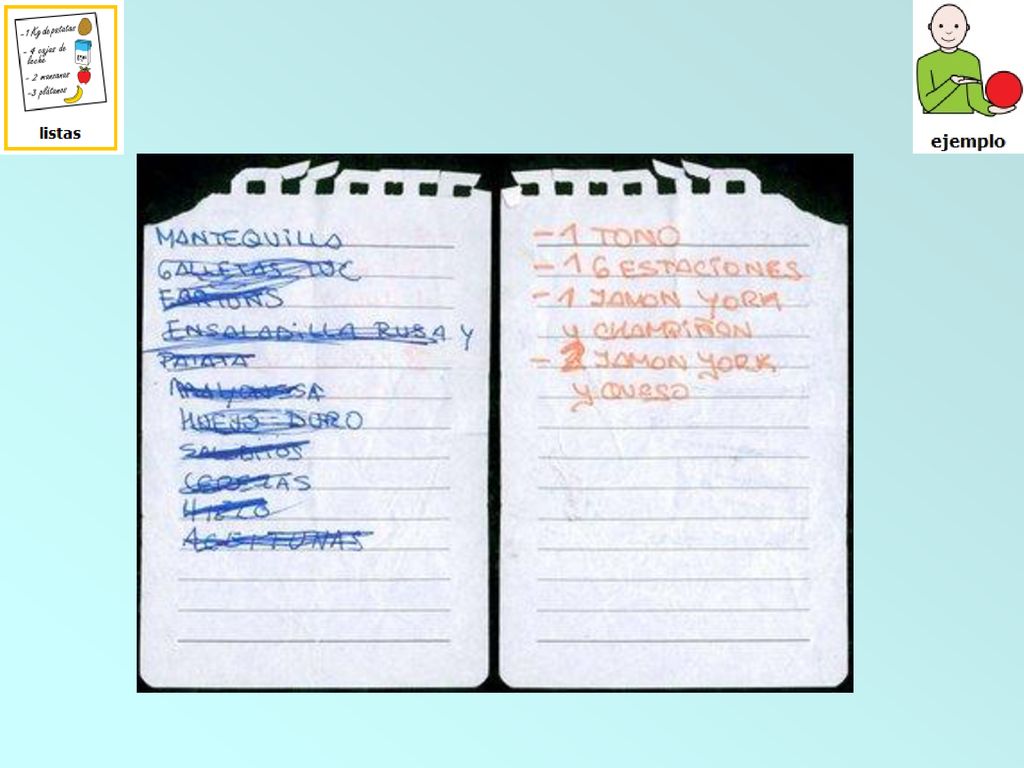 -1 Kg de patatas
- 4 cajas de
leche
- 2 manzanas
-3 plátanos
listas
ejemplo
MANTEQUILLA
GALLETAS TUC
ENSALADILLA RUSA Y
PATATA
MAYONESA
HUEVO DURO
SALADITOS
CEREZAS
HIELO
ACEITUNAS
- 1 TONO
- 1 6 ESTACIONES
- 1 JAMON YORK
y CHAMPIÑON
- 2 JAMON YORK
y QUESO